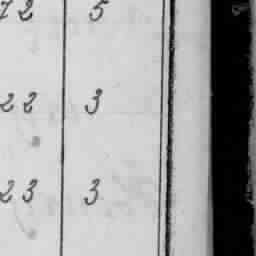 72 5
22 3
23 3